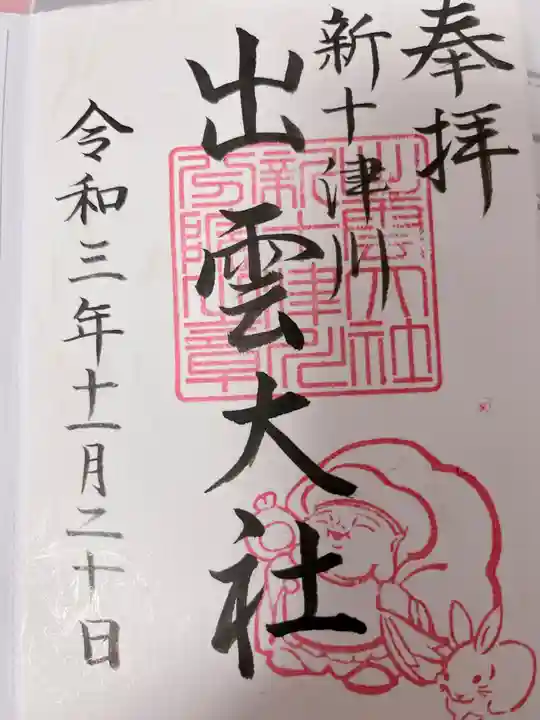 奉拝
新十津川
出雲大社
令和三年十一月二十日
出雲大社
新十津川
分院之章